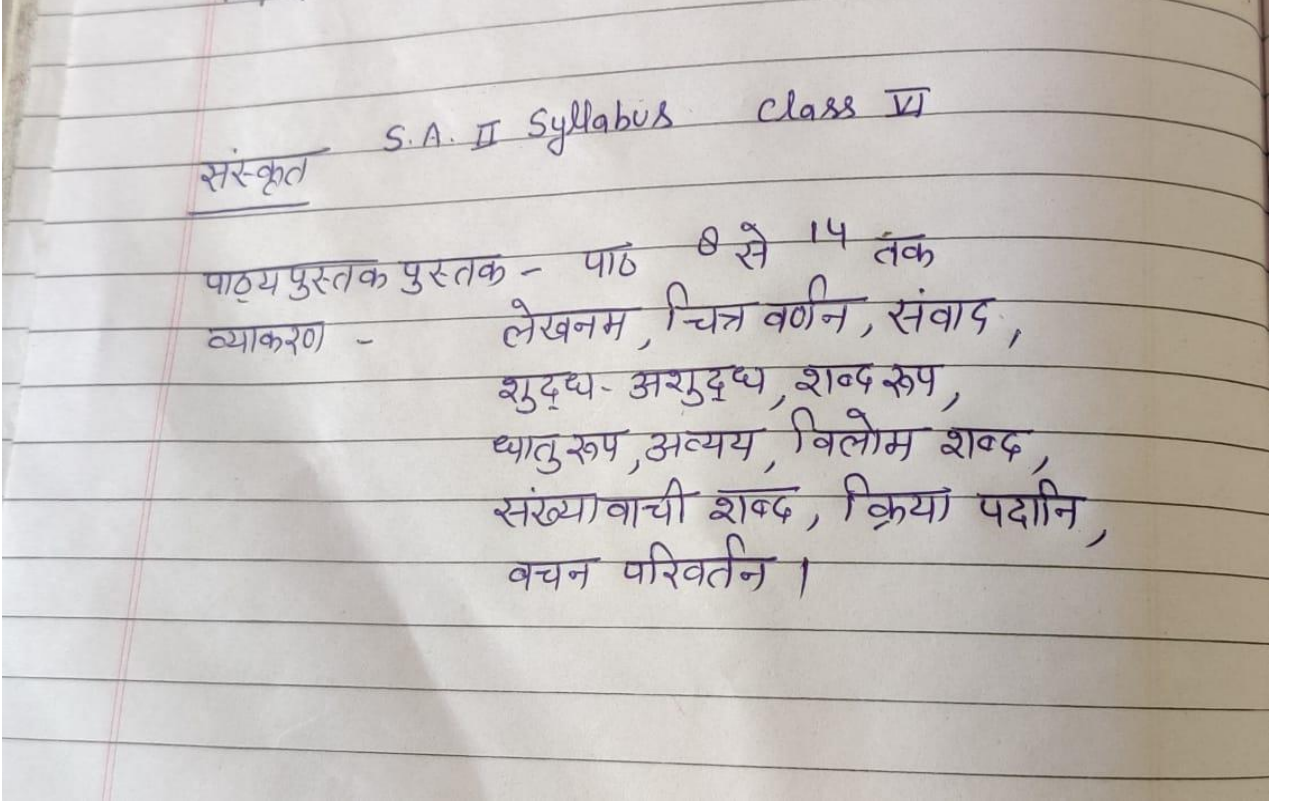 S.A. II Syllabus Class VI
संस्कृत
पाठ्यपुस्तक पुस्तक - पाठ 8 से 14 तक
व्याकरण - लेखनम, चित्र वर्णन, संवाद,
शुद्ध - अशुद्ध, शब्द रूप,
धातु रूप, अव्यय, विलोम शब्द,
संख्यावाची शब्द, क्रिया पदानि,
वचन परिवर्तन ।